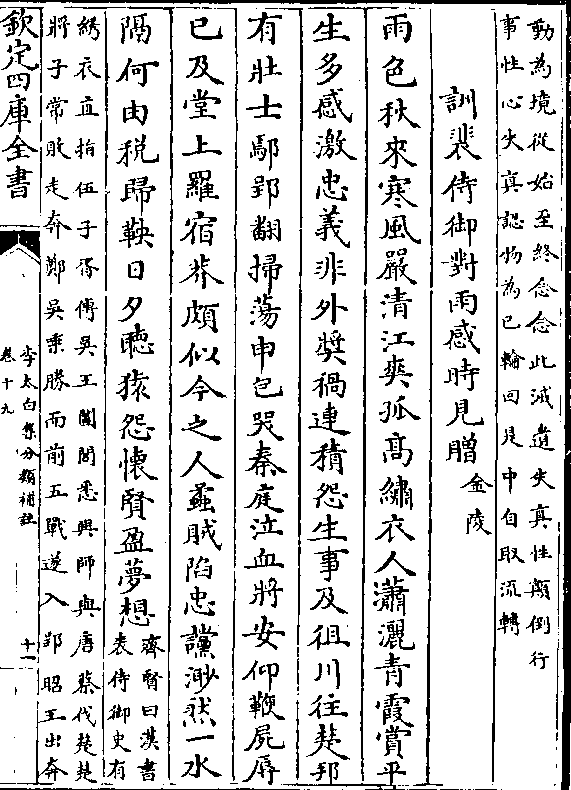 動為境從始至終念念此減遺失真性顛倒行
事性心失真認物為已輪回是中自取流轉
訓裴侍御對雨感時見贈金陵
雨色秋來寒風嚴清江爽孤髙繡衣人瀟灑青霞賞平
生多感激忠義非外奬禍連積怨生事及徂川往楚邦
有壯士鄢郢翻掃蕩申包哭秦庭泣血將安仰鞭屍辱
已及堂上羅宿莽頗似今之人蟊賊陷忠讜渺然一水
隔何由税歸鞅日夕聽猿怨懷賢盈夢想齊賢曰漢書
表侍御史有
綉衣直指伍子胥傳吳王闔閭悉興師與唐蔡代楚楚
將子常敗走奔鄭吳乘勝而前五戰遂入郢昭王出奔
欽定四庫全書
李太白集分類補註
卷十九
十一